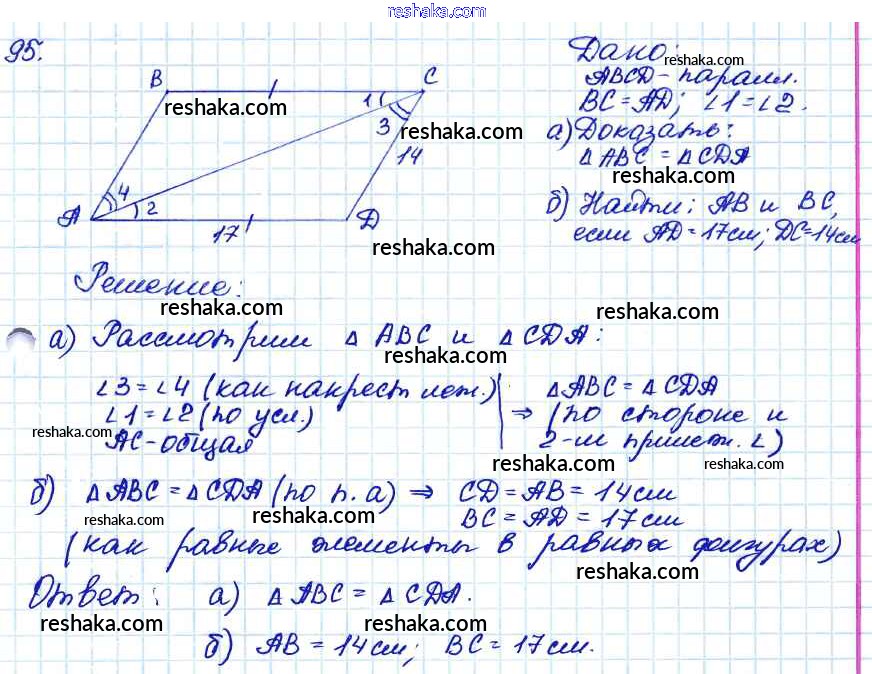 reshaka.com
95.
Дано:
reshaka.com
B
C
ABCD - паралл.
1
reshaka.com
BC = AD; ∠1 = ∠2.
3
reshaka.com
а) Доказать:
14
△ ABC = △ CDA
reshaka.com
4
2
A
D
б) Найти: AB и BC,
17
если AD = 17см; DC = 14см
reshaka.com
reshaka.com
Решение:
reshaka.com
reshaka.com
а) Рассмотрим △ ABC и △ CDA:
reshaka.com
∠3 = ∠4 (как накрест леж.) △ ABC = △ CDA
∠1 = ∠2 (по усл.) ⇒ (по стороне и
reshaka.com
AC - общая 2-м прилеж. ∠)
reshaka.com
reshaka.com
б) △ ABC = △ CDA (по п. а) ⇒ CD = AB = 14см
reshaka.com
reshaka.com
BC = AD = 17см
(как равные элементы в равных фигурах)
reshaka.com
Ответ: а) △ ABC = △ CDA.
reshaka.com
reshaka.com
б) AB = 14см; BC = 17см.